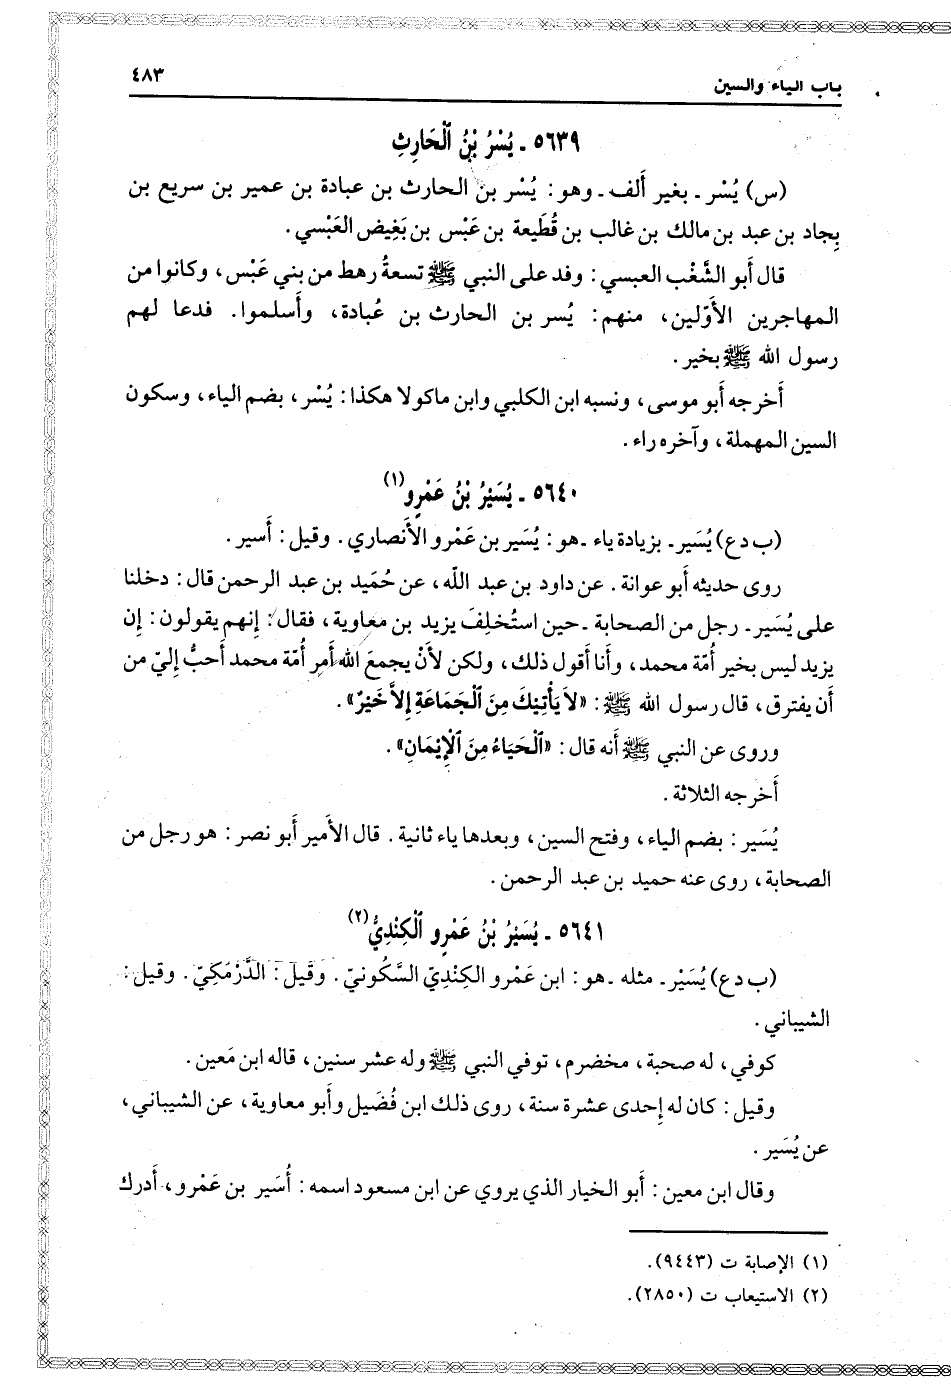 باب الياء والسين ٤٨٣
٥٦٣٩ ـ يُسْرُ بْنُ ٱلْحَارِثِ
(س) يُسْر ـ بغير أَلف ـ وهو: يُسْر بن الحارث بن عبادة بن عمير بن سريع بن
بِجاد بن عبد بن مالك بن غالب بن قُطَيعة بن عَبْس بن بَغِيض العَبْسي.
قال أَبو الشَّغْب العبسي: وفد على النبي ﷺ تسعةُ رهط من بني عَبْس، وكانوا من
المهاجرين الأَوّلين، منهم: يُسر بن الحارث بن عُبادة، وأَسلموا. فدعا لهم
رسول الله ﷺ بخير.
أَخرجه أَبو موسى، ونسبه ابن الكلبي وابن ماكولا هكذا: يُسْر، بضم الياء، وسكون
السين المهملة، وآخره راء.
٥٦٤٠ ـ يُسَيْرُ بْنُ عَمْرٍو(١)
(ب د ع) يُسَير ـ بزيادة ياء ـ هو: يُسَير بن عَمْرو الأَنصاري. وقيل: أَسير.
روى حديثه أَبو عوانة. عن داود بن عبد اللّه، عن حُمَيد بن عبد الرحمن قال: دخلنا
على يُسَير ـ رجل من الصحابة ـ حين استُخلِفَ يزيد بن معاوية، فقال: إِنهم يقولون: إِن
يزيد ليس بخير أُمّة محمد، وأَنا أَقول ذلك، ولكن لأَنْ يجمعَ الله أَمر أُمّة محمد أَحبُّ إِليّ من
أَن يفترق، قال رسول الله ﷺ: «لاَ يَأْتِيْكَ مِنَ ٱلْجَمَاعَةِ إِلاَّ خَيْرٌ».
وروى عن النبي ﷺ أَنه قال: «ٱلْحَيَاءُ مِنَ ٱلْإِيْمَانِ».
أَخرجه الثلاثة.
يُسَير: بضم الياء، وفتح السين، وبعدها ياء ثانية. قال الأَمير أَبو نصر: هو رجل من
الصحابة، روى عنه حميد بن عبد الرحمن.
٥٦٤١ ـ يُسَيْرُ بْنُ عَمْرٍو ٱلْكِنْدِيُّ(٢)
(ب د ع) يُسَيْر ـ مثله ـ هو: ابن عَمْرو الكِنْدِيّ السَّكُونيّ. وَقيل: الدَّرْمَكِيّ. وقيل:
الشيباني.
كوفي، له صحبة، مخضرم، توفي النبي ﷺ وله عشر سنين، قاله ابن مَعين.
وقيل: كان له إِحدى عشرة سنة، روى ذلك ابن فُضَيل وأَبو معاوية، عن الشيباني،
عن يُسَير.
وقال ابن معين: أَبو الخيار الذي يروي عن ابن مسعود اسمه: أُسَير بن عَمْرو، أَدرك
(١) الإصابة ت (٩٤٤٣).
(٢) الاستيعاب ت (٢٨٥٠).